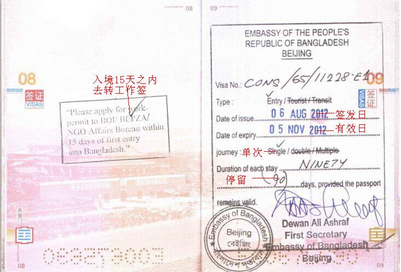 08
签证
VISAS
入境15天之内
去转工作签
"Please apply for work-
permit to BOI/ BEPZA/
NGO Affairs Bureau within
15 days of first entry
into Bangladesh."
EMBASSY OF THE PEOPLE'S
REPUBLIC OF BANGLADESH
BEIJING
09
签证
VISAS
Visa No.: CONS/65/11228-E1
Type : Entry / Tourist / Transit
Date of issue 06 AUG 2012 签发日
Date of expiry 05 NOV 2012 有效日
journey : 单次 Single / double / Multiple
Duration of each stay NINETY
停留 90 days, provided the passport
remains valid.
Dewan Ali Ashraf
First Secretary
Embassy of Bangladesh
Beijing
Embassy of Bangladesh
Beijing